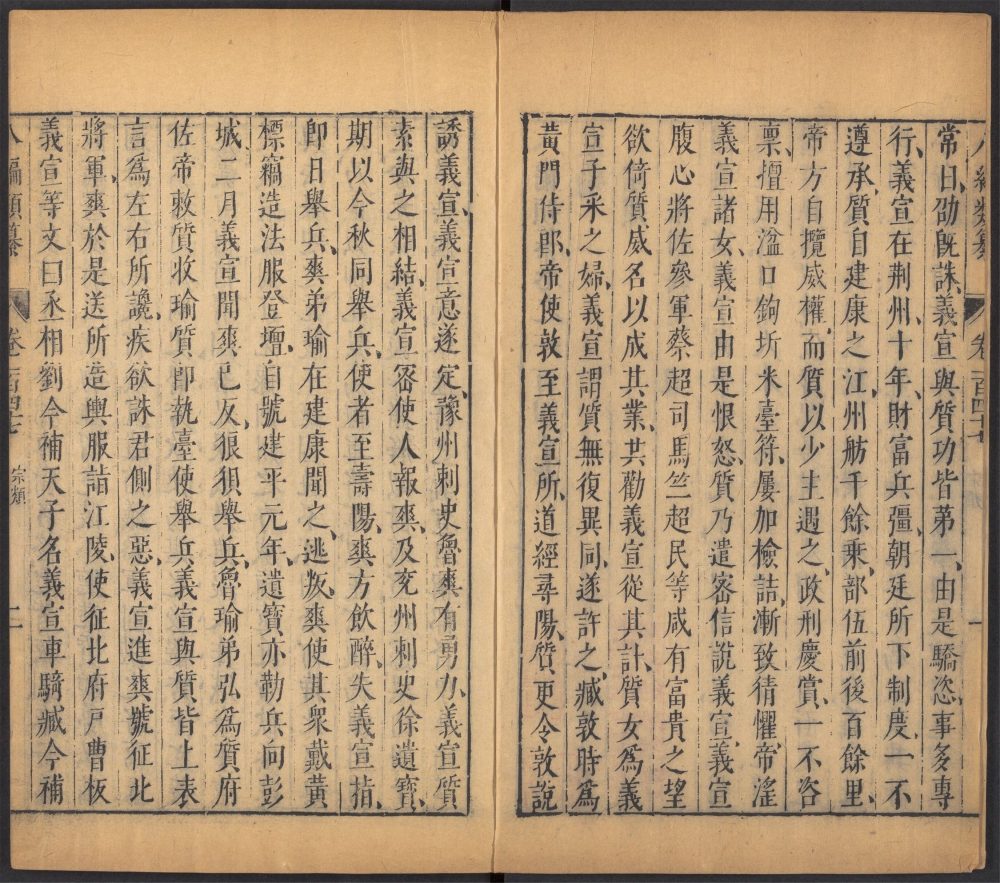 八編類纂 卷一百四十七 一
常日劭旣誅義宣與質功皆第一由是驕恣事多專
行義宣在荆州十年財富兵彊朝廷所下制度一不
遵承質自建康之江州舫千餘乘部伍前後百餘里
帝方自攬威權而質以少主遇之政刑慶賞一不咨
稟擅用湓口鉤圻米臺符屢加檢詰漸致猜懼帝淫
義宣諸女義宣由是恨怒質乃遣密信說義宣義宣
腹心將佐參軍蔡超司馬竺超民等咸有富貴之望
欲倚質威名以成其業共勸義宣從其計質女爲義
宣子采之婦義宣謂質無復異同遂許之臧敦時爲
黃門侍郎帝使敦至義宣所道經尋陽質更令敦說
誘義宣義宣意遂定豫州刺史魯爽有勇力義宣質
素與之相結義宣密使人報爽及兖州刺史徐遺寶
期以今秋同舉兵使者至壽陽爽方飲醉失義宣指
即日舉兵爽弟瑜在建康聞之逃叛爽使其衆戴黃
標竊造法服登壇自號建平元年遺寶亦勒兵向彭
城二月義宣聞爽已反狼狽舉兵魯瑜弟弘爲質府
佐帝敕質收瑜質即執臺使舉兵義宣與質皆上表
言爲左右所讒疾欲誅君側之惡義宣進爽號征北
將軍爽於是送所造輿服詣江陵使征北府戸曹板
義宣等文曰丞相劉今補天子名義宣車騎臧今補
八編類纂 卷一百四十七 宗類 二